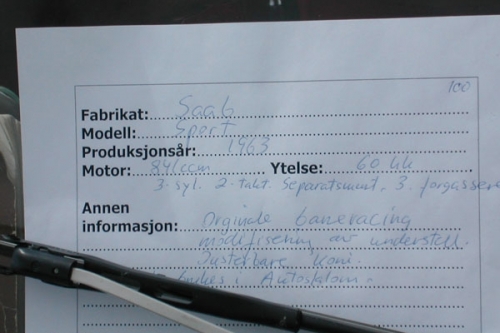 100
Fabrikat: Saab
Modell: Sport
Produksjonsår: 1963
Motor: 841ccm Ytelse: 60 hk
3-syl. 2-takt. Separatsmurt, 3. forgassere
Annen
informasjon: Orginale baneracing
modifisering av understell.
Justerbare Koni.
i Autoslalom.